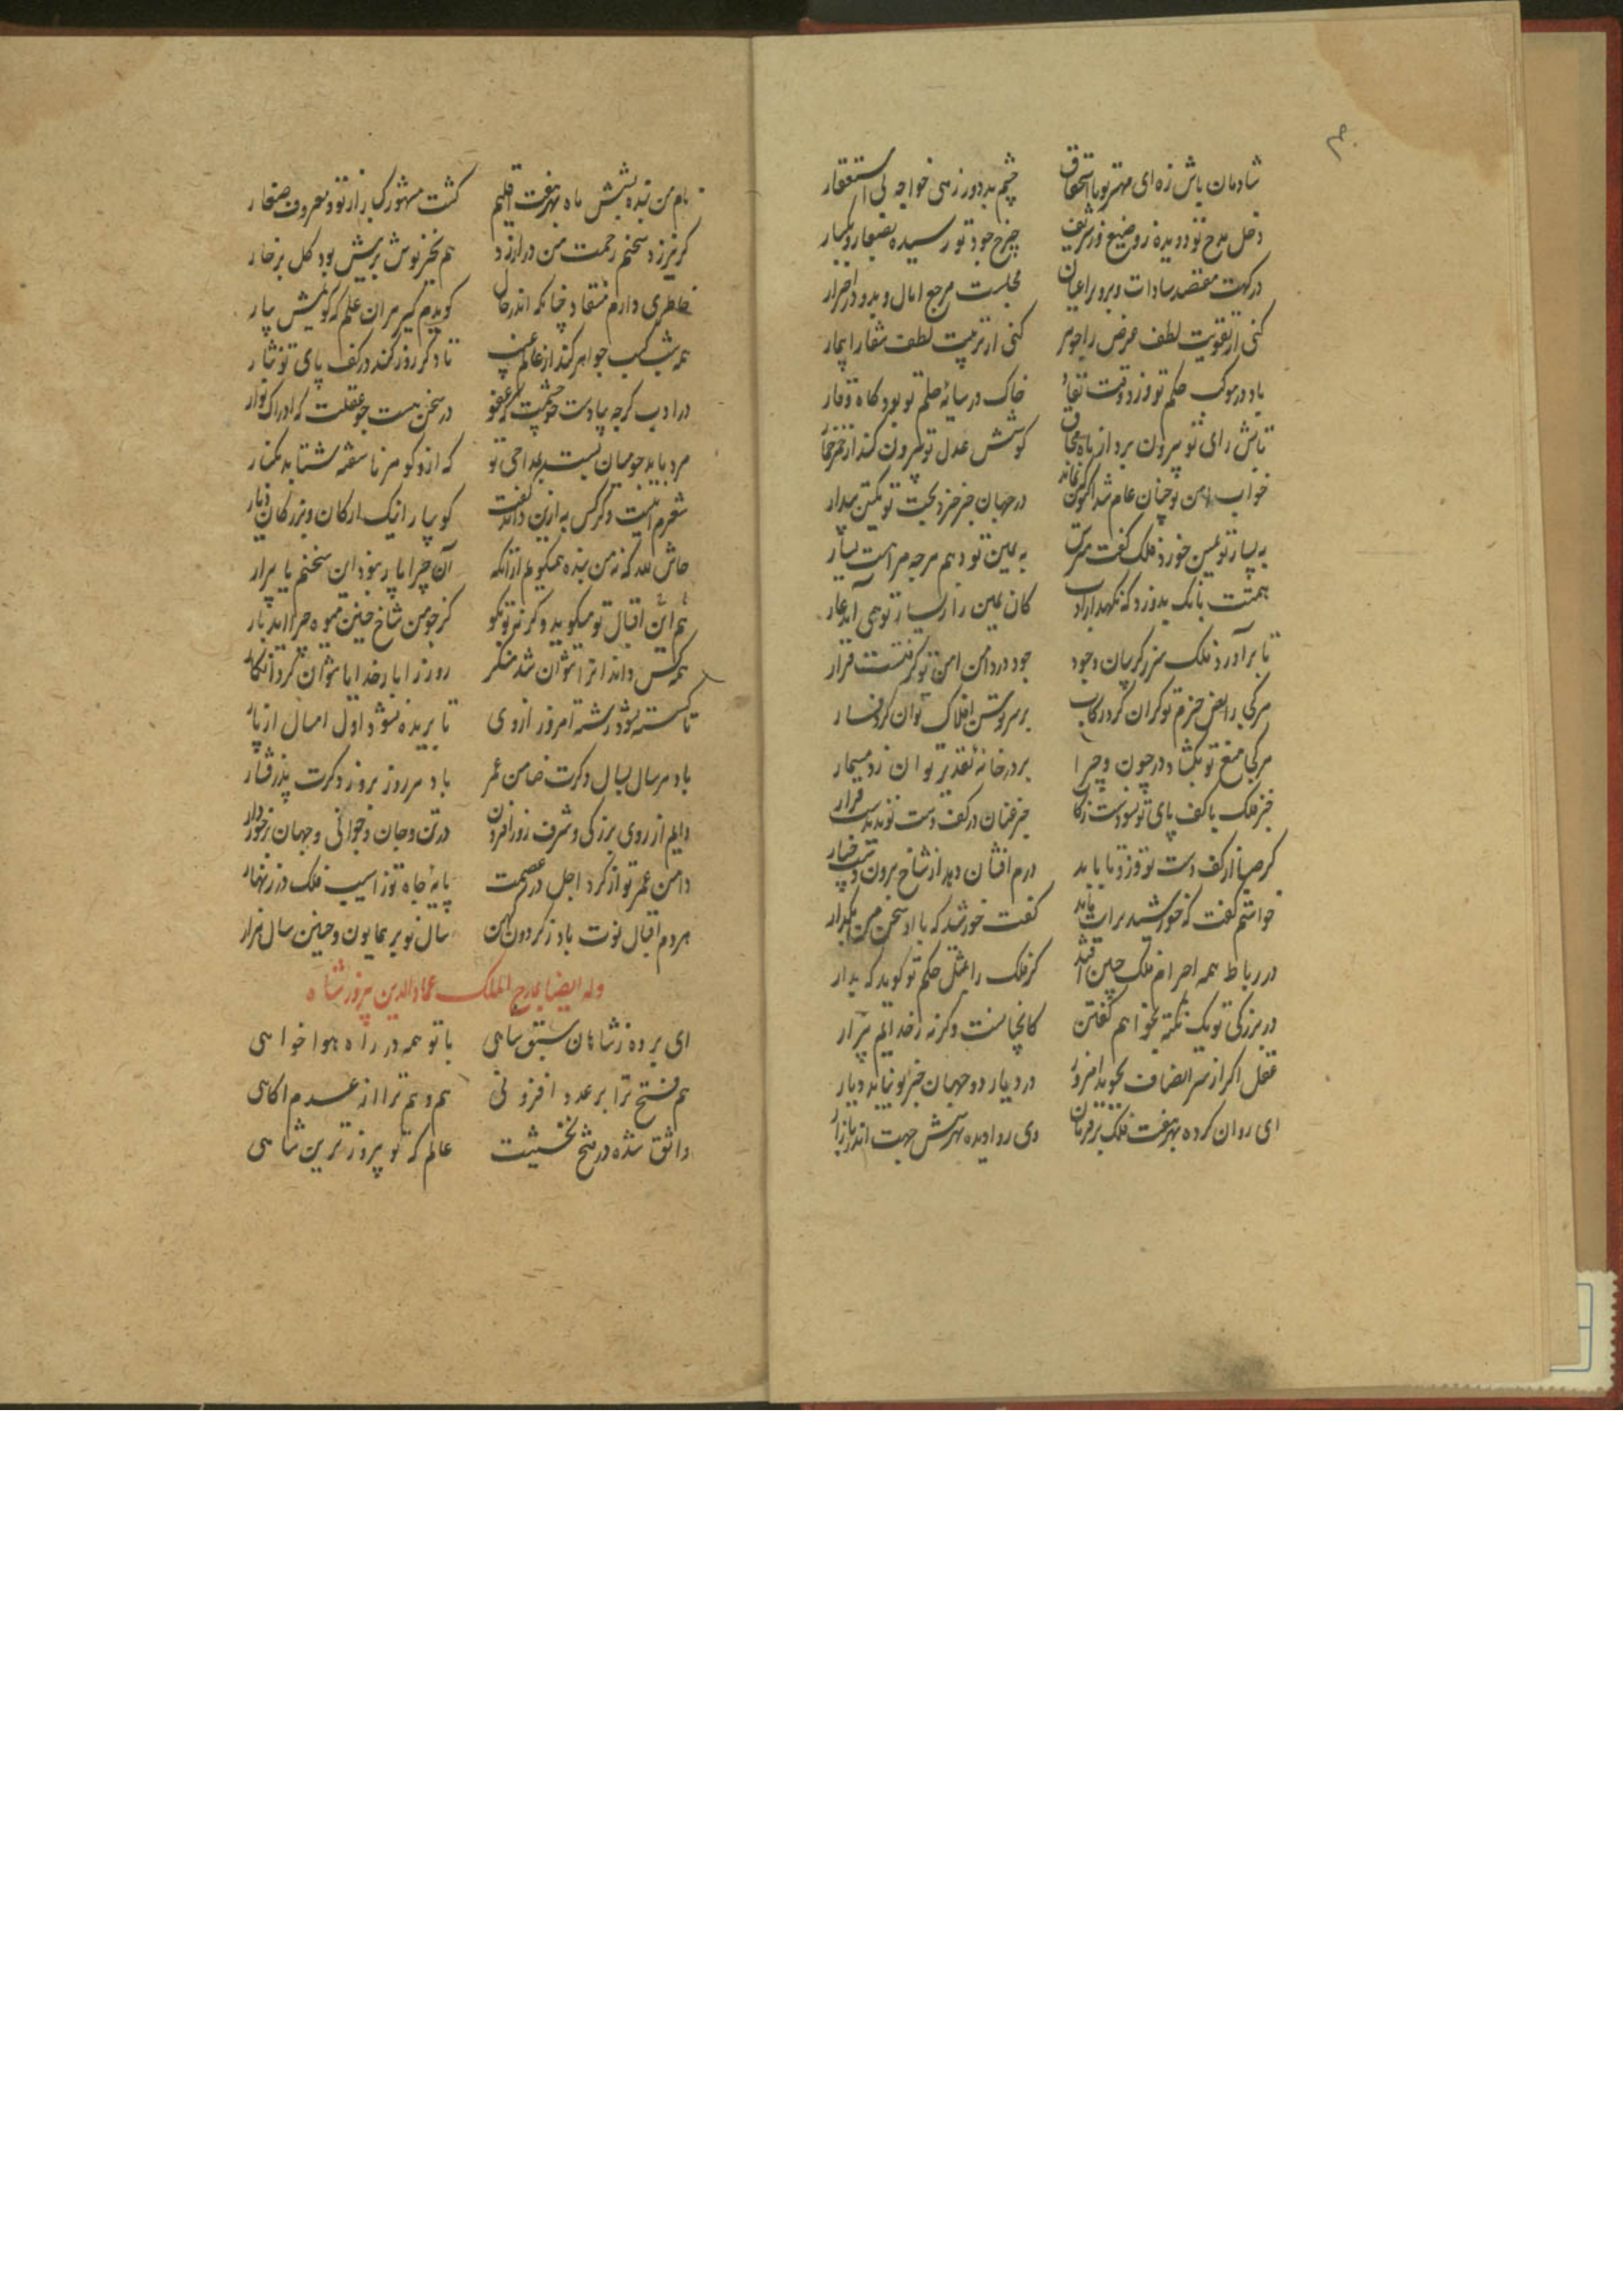 شادمان باش زه ای مهتر با استحقاق چشم بد دور زهی خواجه بی استحقار
دخل مدح تو دویده ز وضیع و ز شریف خرج جود تو رسیده بصغار و بکبار
درکهت مقصد سادات و برو بر اعیان مجلست مرجع امال و بدو در احرار
کنی از تقویت لطف عرض را جوهر کنی از تربیت لطف شفا را بیمار
باد در موکب حکم تو وزد وقت نفاذ خاک در سایه حلم تو بود کاه وقار
تابش رای تو بیرون برد از ماه محاق کوشش عدل تو بیرون کند از خمر خمار
خواب امن تو چنان عام شد اکنون که نماند در جهان جز خرد و بخت تو یکتن بیدار
به یسار تو یمین خورد فلک گفت مترس به یمین تو دهم هرچه مراهست یسار
همتت بانک بدو زد که نکهدار ادب کان یمین را ز یسار تو همی آید عار
تا برآورد فلک سر ز کریبان وجود جود در دامن امن تو کرفتست قرار
هر کجا رایض حزم تو کران کرد رکاب بر سر توسن افلاک توان کرد فسار
هر کجا منع تو بکشاد در چون و چرا بر در خانه تقدیر توان زد مسمار
جز فلک با کف پای تو نسودست رکاب جز عنان در کف دست تو ندیدست قرار
کر صبا از کف دست تو وزد تا باید درم افشان دمد از شاخ برون دست چنار
خواستم گفت که خورشید برات ماند گفت خورشید که با او سخن من بکذار
در رباط همه اجرام فلک چین افتد کر فلک را بمثل حکم تو کوید که بدار
در بزرگی تو یک نکته بخواهم گفتن کانچنانست وکرنه ز خدایم بیزار
عقل اکر از سر انصاف بجوید امروز در دیار دو جهان جز تو نیابد دیار
ای روان کرده بهر هفت فلک بر فرمان وی روا دیده بهر شش جهت اندر بازار
نام من بنده بشش ماه بهر هفت اقلیم کشت مشهور کبار از تو و معروف صغار
کر نیرزد سخنم زحمت من در ارزد هم بخر نوش بریش بود کل بر خار
خاطری دارم منقاد چنانکه اندر حال کویدم کیر هر ان علم که کویش بیار
همه شب کسب جواهر کند از عالم غیب تا دکر روز کند در کف پای تو نثار
در ادب کرچه پیادست
در سخن هست چو عقلست که ادراک سوار
مرد باید چو میان بست بمداحی تو که ازو کوهر ناسفته ستاند بکنار
شعرم اینست وکر کس به ازین داند گفت کو بیار اینک ارکان و بزرکان دیار
حاش لله که نه من بنده همیکویم ازانکه آن چرا پار نبود این سخنم یا پیرار
هم این اقبال تو میکوید وکر نه تو بکو کز چو من شاخ چنین میوه چرا اید بار
همه کس داند انرا نتوان شد منکر روز را بار خدایا نتوان کرد انکار
تا کسسته نشود رشته امروز از دی تا بریده نشود اول امسال از پار
باد هر سال بسال دکرت ضامن عمر باد هر روز بروز دکرت پذرفتار
دایم از روی بزرکی و شرف روزافزون در تن و جان و جوانی و جهان برخوردار
دامن عمر تو از کرد اجل در عصمت پایه جاه تو ز اسیب فلک در زنهار
هر دم اقبال نوت باد ز کردون کهن سال نو بر تو همایون و چنین سال هزار
وله ایضا بمدح الملک عماد الدین پیروز شاه
ای برده ز شاهان سبق شاهی با تو همه در راه هوا خواهی
هم فتح ترا بر عدد افزونی هم وهم ترا از عدم اکاهی
واثق شده در فتح نخستینت عالم که تو پیروزترین شاهی